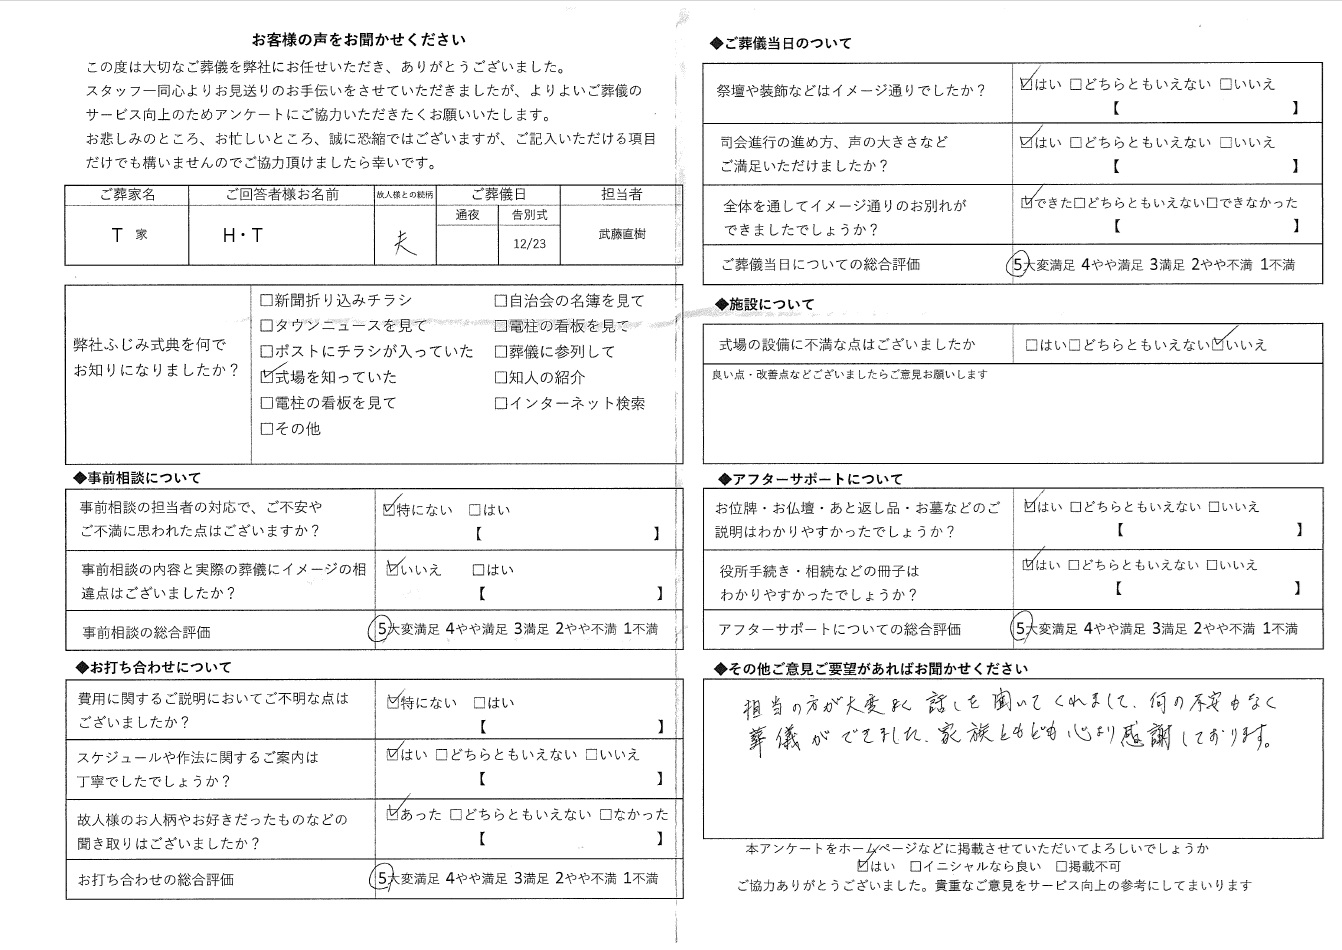 お客様の声をお聞かせください
この度は大切なご葬儀を弊社にお任せいただき、ありがとうございました。
スタッフ一同心よりお見送りのお手伝いをさせていただきましたが、よりよいご葬儀の
サービス向上のためアンケートにご協力いただきたくお願いいたします。
お悲しみのところ、お忙しいところ、誠に恐縮ではございますが、ご記入いただける項目
だけでも構いませんのでご協力頂けましたら幸いです。
ご葬家名 ご回答者様お名前 故人様との続柄 ご葬儀日 担当者
通夜 告別式
T 家 H・T 夫 12/23 武藤直樹
弊社ふじみ式典を何で
お知りになりましたか？
□新聞折り込みチラシ □自治会の名簿を見て
□タウンニュースを見て □電柱の看板を見て
□ポストにチラシが入っていた □葬儀に参列して
☑式場を知っていた □知人の紹介
□電柱の看板を見て □インターネット検索
□その他
◆事前相談について
事前相談の担当者の対応で、ご不安や
ご不満に思われた点はございますか？
☑特にない □はい
【 】
事前相談の内容と実際の葬儀にイメージの相
違点はございましたか？
☑いいえ □はい
【 】
事前相談の総合評価 5大変満足 4やや満足 3満足 2やや不満 1不満
◆お打ち合わせについて
費用に関するご説明においてご不明な点は
ございましたか？
☑特にない □はい
【 】
スケジュールや作法に関するご案内は
丁寧でしたでしょうか？
☑はい □どちらともいえない □いいえ
【 】
故人様のお人柄やお好きだったものなどの
聞き取りはございましたか？
☑あった □どちらともいえない □なかった
【 】
お打ち合わせの総合評価 5大変満足 4やや満足 3満足 2やや不満 1不満
◆ご葬儀当日のついて
祭壇や装飾などはイメージ通りでしたか？
☑はい □どちらともいえない □いいえ
【 】
司会進行の進め方、声の大きさなど
ご満足いただけましたか？
☑はい □どちらともいえない □いいえ
【 】
全体を通してイメージ通りのお別れが
できましたでしょうか？
☑できた□どちらともいえない□できなかった
【 】
ご葬儀当日についての総合評価 5大変満足 4やや満足 3満足 2やや不満 1不満
◆施設について
式場の設備に不満な点はございましたか □はい□どちらともいえない☑いいえ
良い点・改善点などございましたらご意見お願いします
◆アフターサポートについて
お位牌・お仏壇・あと返し品・お墓などのご
説明はわかりやすかったでしょうか？
☑はい □どちらともいえない □いいえ
【 】
役所手続き・相続などの冊子は
わかりやすかったでしょうか？
☑はい □どちらともいえない □いいえ
【 】
アフターサポートについての総合評価 5大変満足 4やや満足 3満足 2やや不満 1不満
◆その他ご意見ご要望があればお聞かせください
担当の方が大変よく話しを聞いてくれまして、何の不安もなく
葬儀ができました、家族ともども心より感謝しております。
本アンケートをホームページなどに掲載させていただいてよろしいでしょうか
☑はい □イニシャルなら良い □掲載不可
ご協力ありがとうございました。貴重なご意見をサービス向上の参考にしてまいります